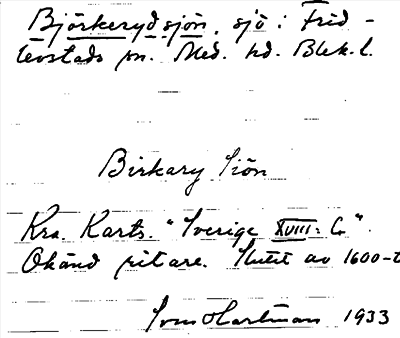 Björkerydsjön, sjö i Frid-
levstads sn. Med. hd. Blek. l.
Birkary Siön
Kra. Karts. "Sverige XVIII: C".
Okänd ritare. Slutet av 1600-t
Hartman 1933